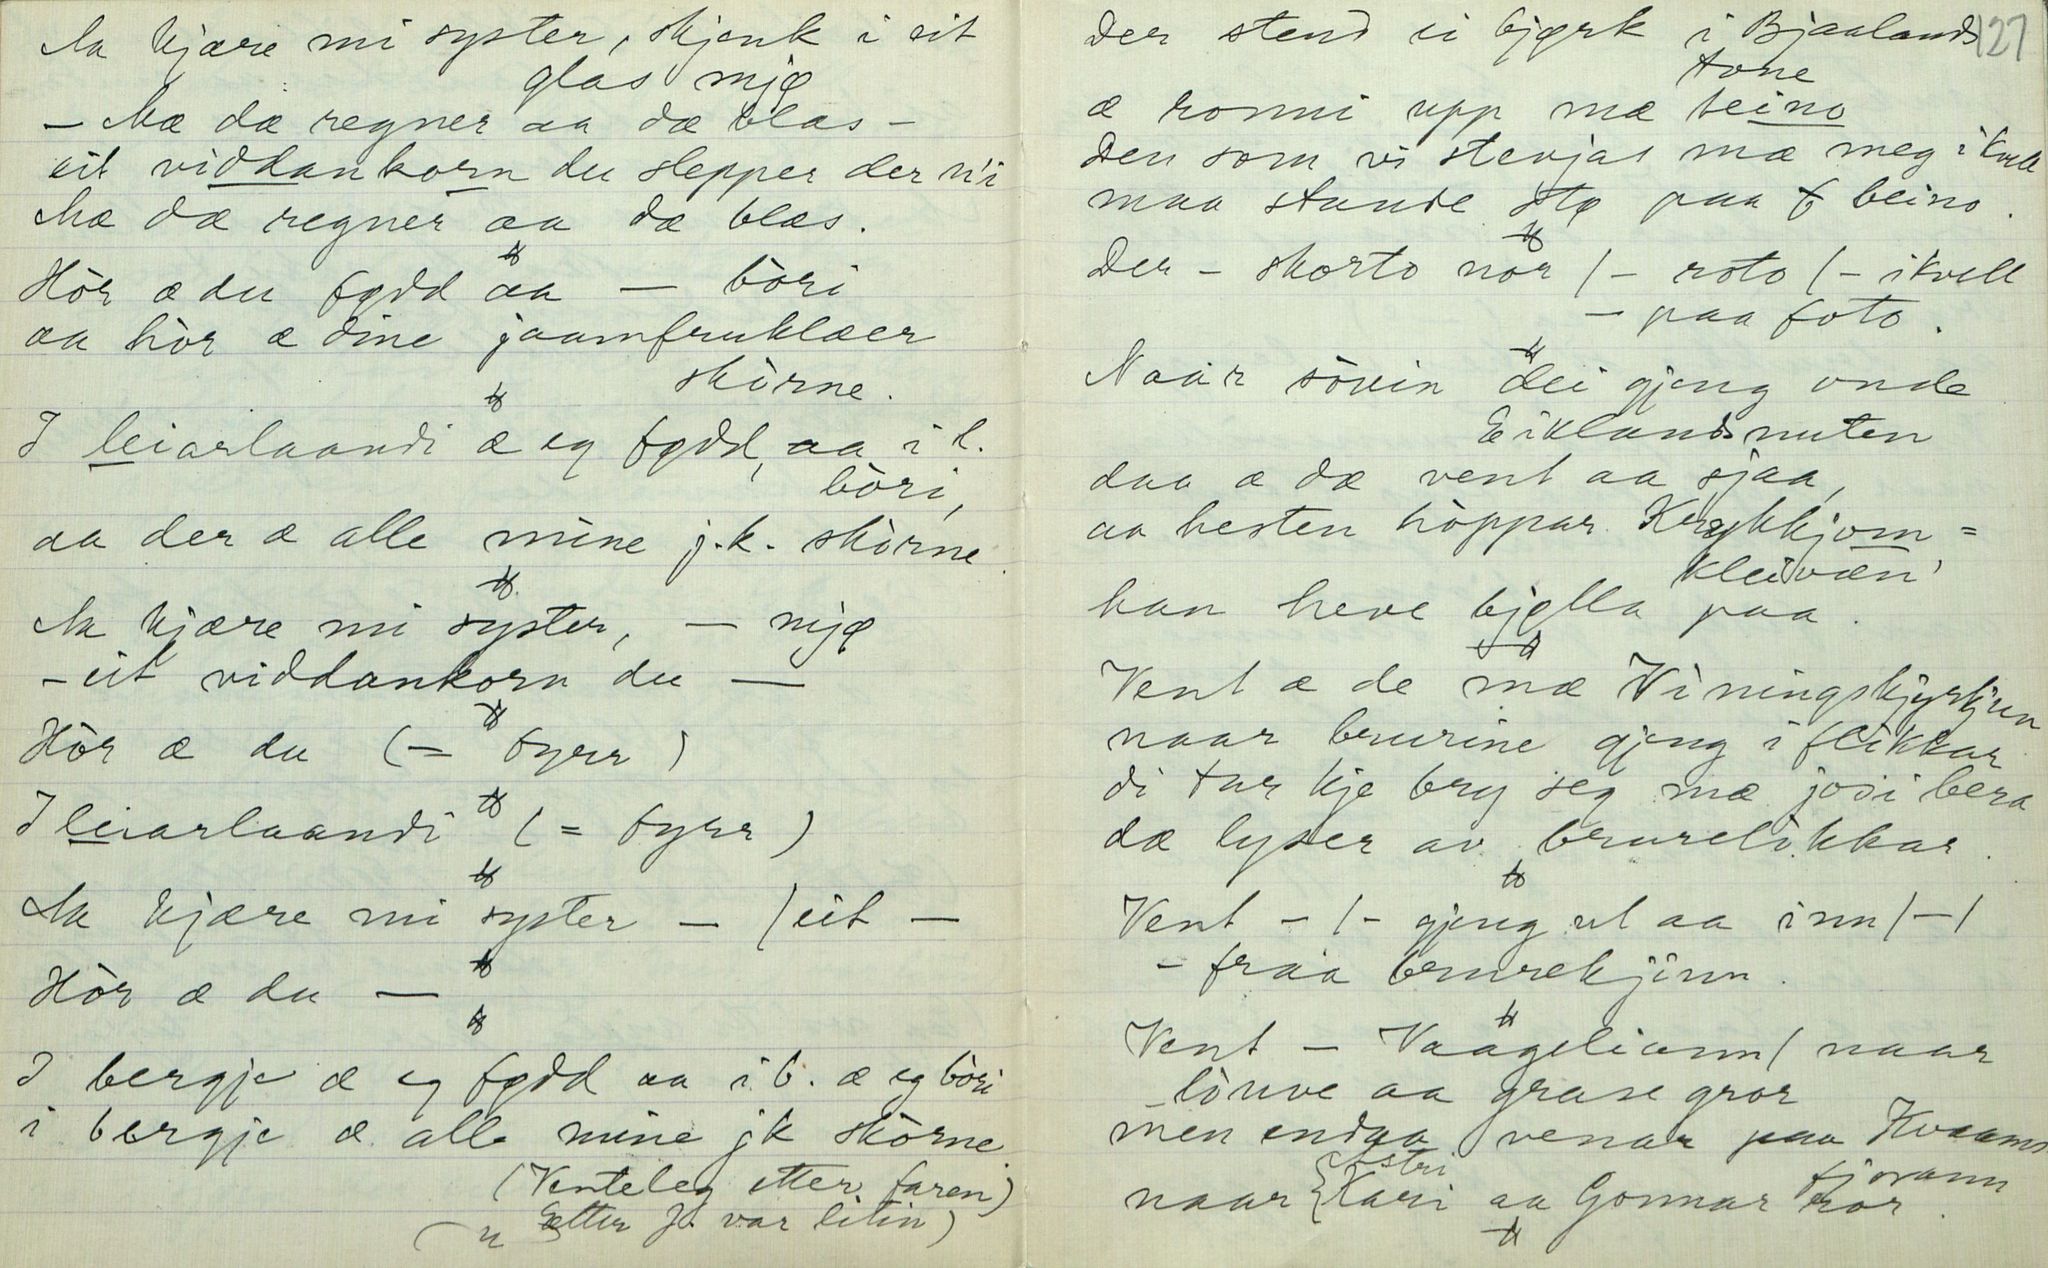 Aa kjære mi syster, skjenk i eit
glas mjø
– Mæ dæ regner aa dæ blæs –
eit viddankorn du slepper der n'i
Mæ dæ regner aa dæ blæs.
Hòr æ du fødd aa — bòri
aa hòr æ dine jaamfruklæer
skòrne.
I leiarlaandi æ eg fødd, aa i l.
bòri,
aa der æ alle mine j.k. skòrne.
Aa kjære mi syster, — mjø
– eit viddankorn du —
Hòr æ du (= fyrr)
I leiarlaandi (= fyrr)
Aa kjære mi syster – / eit –
Hòr æ du —
I bergje æ eg fødd aa i b. æ eg bòri
i bergje æ alle mine jk skòrne
(Venteleg etter faren)
( " Etter J. var litin)
127
Der stend ei bjørk i Bjaalands
tone
æ ronni upp mæ teino
Den som vi stevjas mæ meg i kvell
maa stande stø paa beino.
Der – skorto nòr / – roto / – ikvell
– paa foto.
Naar sòuin dei gjeng onde
Eiklandsnuten
daa æ dæ vent aa sjaa,
aa hesten hòppar Krykkjom=
kleivæn,
han heve bjølla paa.
Vent æ de mæ Viningskjyrkjun
naar brurine gjeng i flikkar
di tar kje bry seg mæ josi bera
dæ lyser av brurelikkar.
Vent – / – gjeng ut aa inn / – /
– fraa brurekjinn.
Vent – Vaagelienn / naar
lòuve aa grase gror
men endaa venar paa Hvaams
fjorann
naar { Astri
Kari aa Gonnar ror.